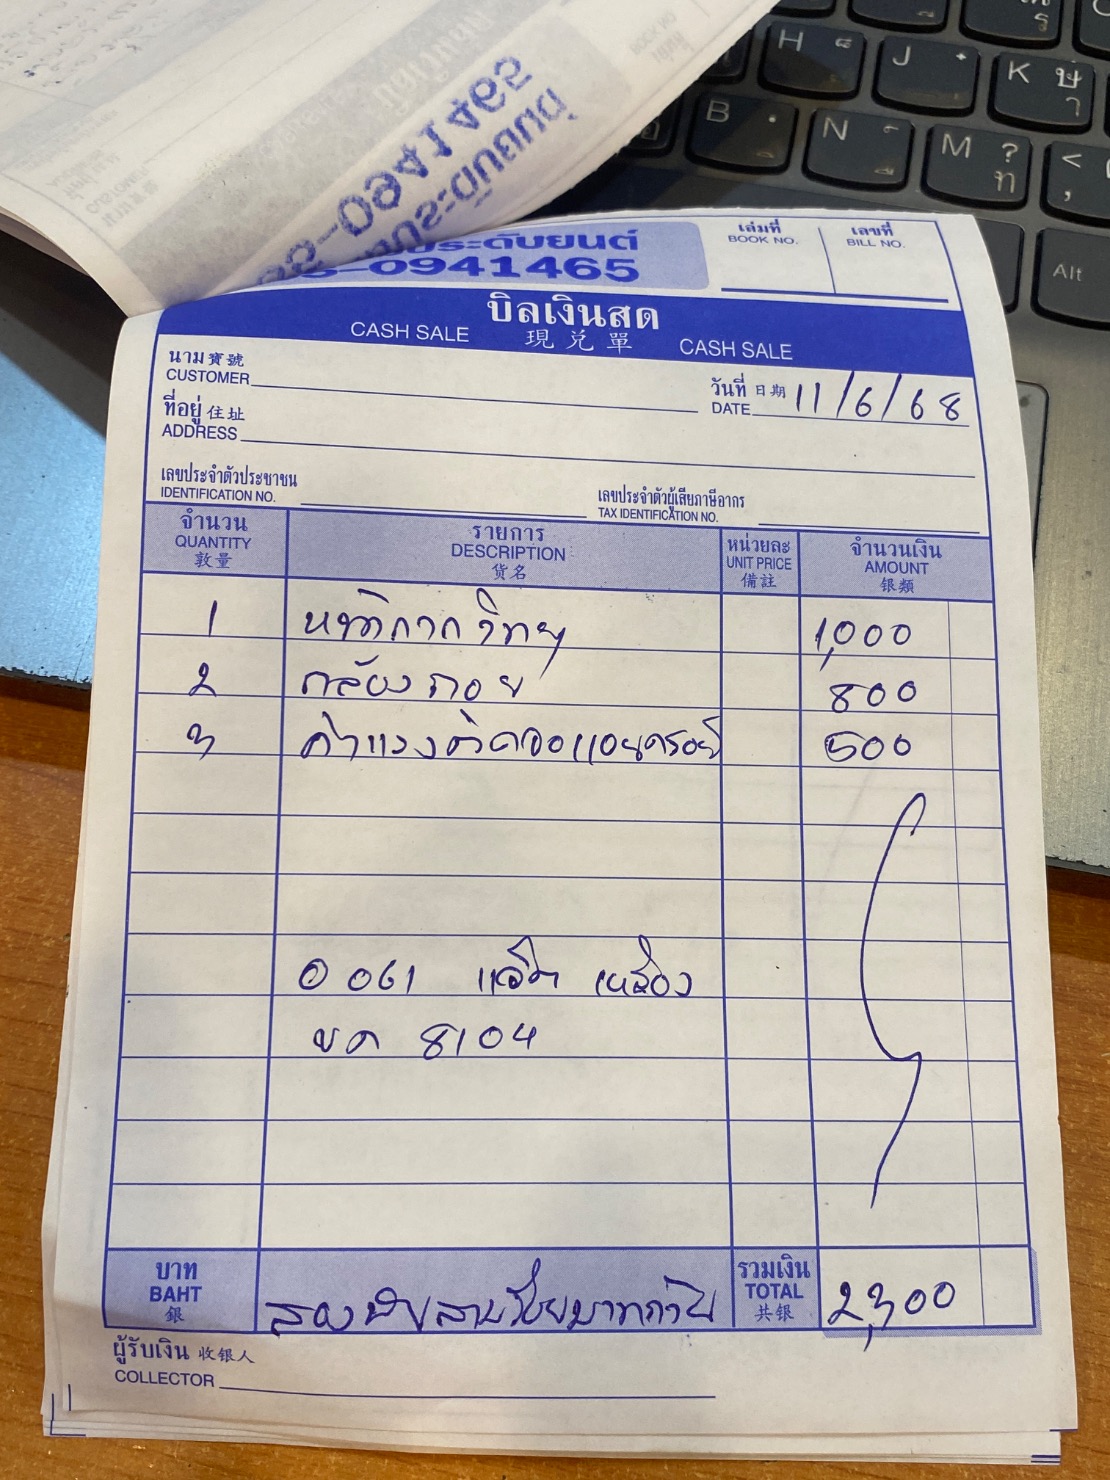 ประดับยนต์
0941465
เล่มที่ เลขที่
BOOK NO. BILL NO.
บิลเงินสด
CASH SALE 現兌單 CASH SALE
นาม寶號
CUSTOMER
วันที่ 日期 11/6/68
DATE
ที่อยู่ 住址
ADDRESS
เลขประจำตัวประชาชน
IDENTIFICATION NO.
เลขประจำตัวผู้เสียภาษีอากร
TAX IDENTIFICATION NO.
จำนวน รายการ หน่วยละ จำนวนเงิน
QUANTITY DESCRIPTION UNIT PRICE AMOUNT
貨名 備註 银類
1 หน้ากากวิทยุ 1,000
2 กล้องถอย 800
3 ค่าแรงติดจอแอนดรอย์ 500
0061 เหลือง
ขค 8104
บาท
BAHT
銀
สองพันสามร้อยบาทถ้วน
รวมเงิน
TOTAL
共银
2,300
ผู้รับเงิน 收银人
COLLECTOR
H J K ษ า
B N M ? ท < ,
Alt